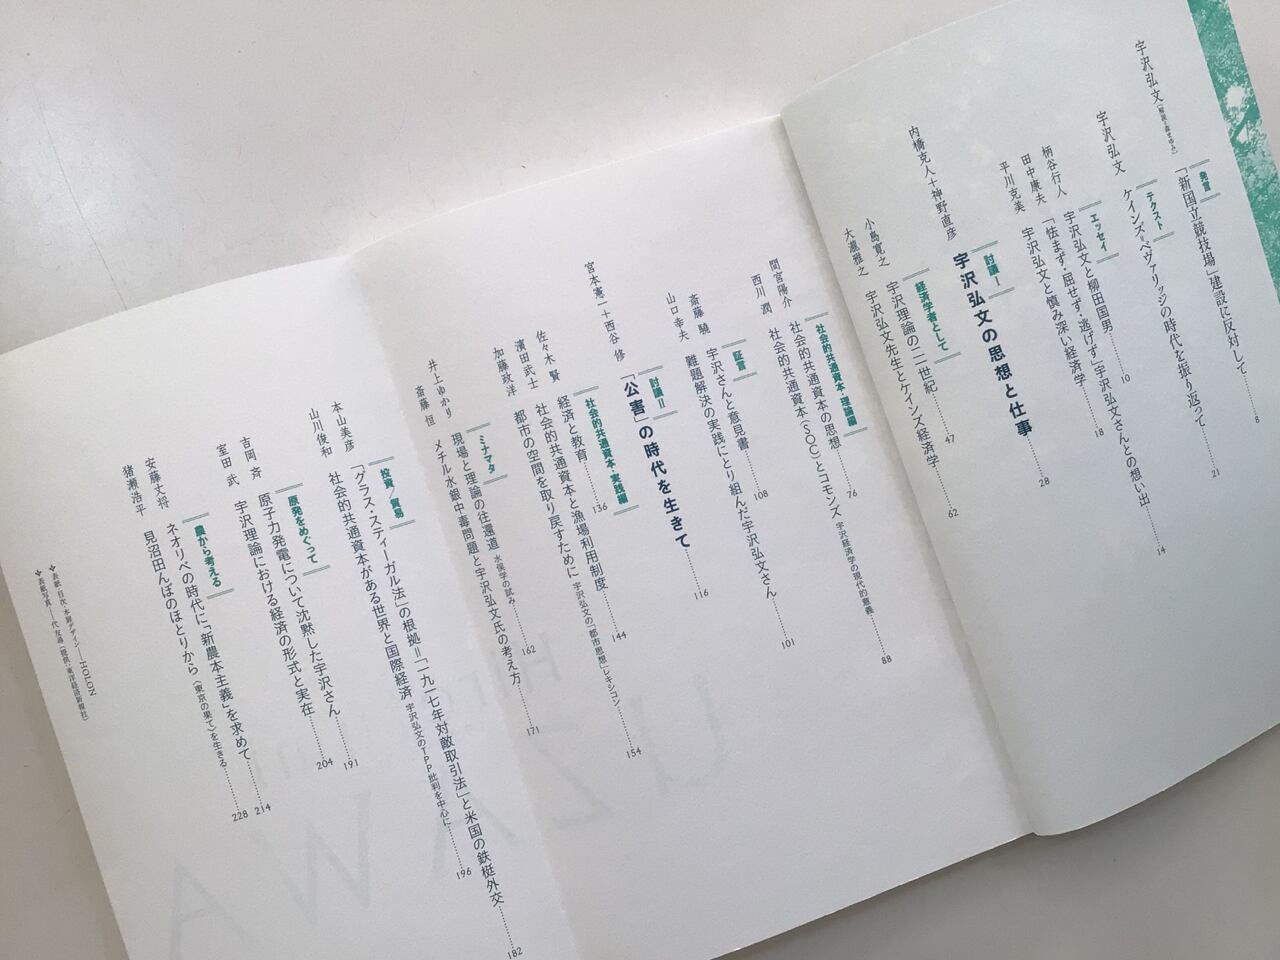 発言
宇沢弘文(解説=森まゆみ)
「新国立競技場」建設に反対して 8
テクスト
宇沢弘文
ケインズ=ベヴァリッジの時代を振り返って 21
エッセイ
柄谷行人
宇沢弘文と柳田国男 10
田中康夫
「怯まず・屈せず・逃げず」宇沢弘文さんとの想い出 14
平川克美
宇沢弘文と慎み深い経済学 18
討議Ⅰ
内橋克人+神野直彦
宇沢弘文の思想と仕事 28
経済学者として
小島寛之
宇沢理論の二一世紀 47
大瀧雅之
宇沢弘文先生とケインズ経済学 62
社会的共通資本・理論編
間宮陽介
社会的共通資本の思想 76
西川 潤
社会的共通資本(SOC)とコモンズ 宇沢経済学の現代的意義 88
証言
斎藤 驍
宇沢さんと意見書 108
山口幸夫
難題解決の実践にとり組んだ宇沢弘文さん 101
討議Ⅱ
宮本憲一+西谷 修
「公害」の時代を生きて 116
社会的共通資本・実践編
佐々木 賢
経済と教育 136
濱田武士
社会的共通資本と漁場利用制度 144
加藤政洋
都市の空間を取り戻すために 宇沢弘文の「都市思想」レキシコン 154
ミナマタ
井上ゆかり
現場と理論の往還道 水俣学の試み 162
斎藤 恒
メチル水銀中毒問題と宇沢弘文氏の考え方 171
投資/貿易
本山美彦
「グラス・スティーガル法」の根拠=「一九一七年対敵取引法」と米国の鉄梃外交 182
山川俊和
社会的共通資本がある世界と国際経済 宇沢弘文のTPP批判を中心に 196
原発をめぐって
吉岡 斉
原子力発電について沈黙した宇沢さん 191
室田 武
宇沢理論における経済の形式と実在 204
農から考える
安藤丈将
ネオリベの時代に「新農本主義」を求めて 214
猪瀬浩平
見沼田んぼのほとりから〈東京の果て〉を生きる 228
❖表紙・目次・本扉デザイン――HOLON
❖表紙写真――代 友尋(提供・東洋経済新報社)